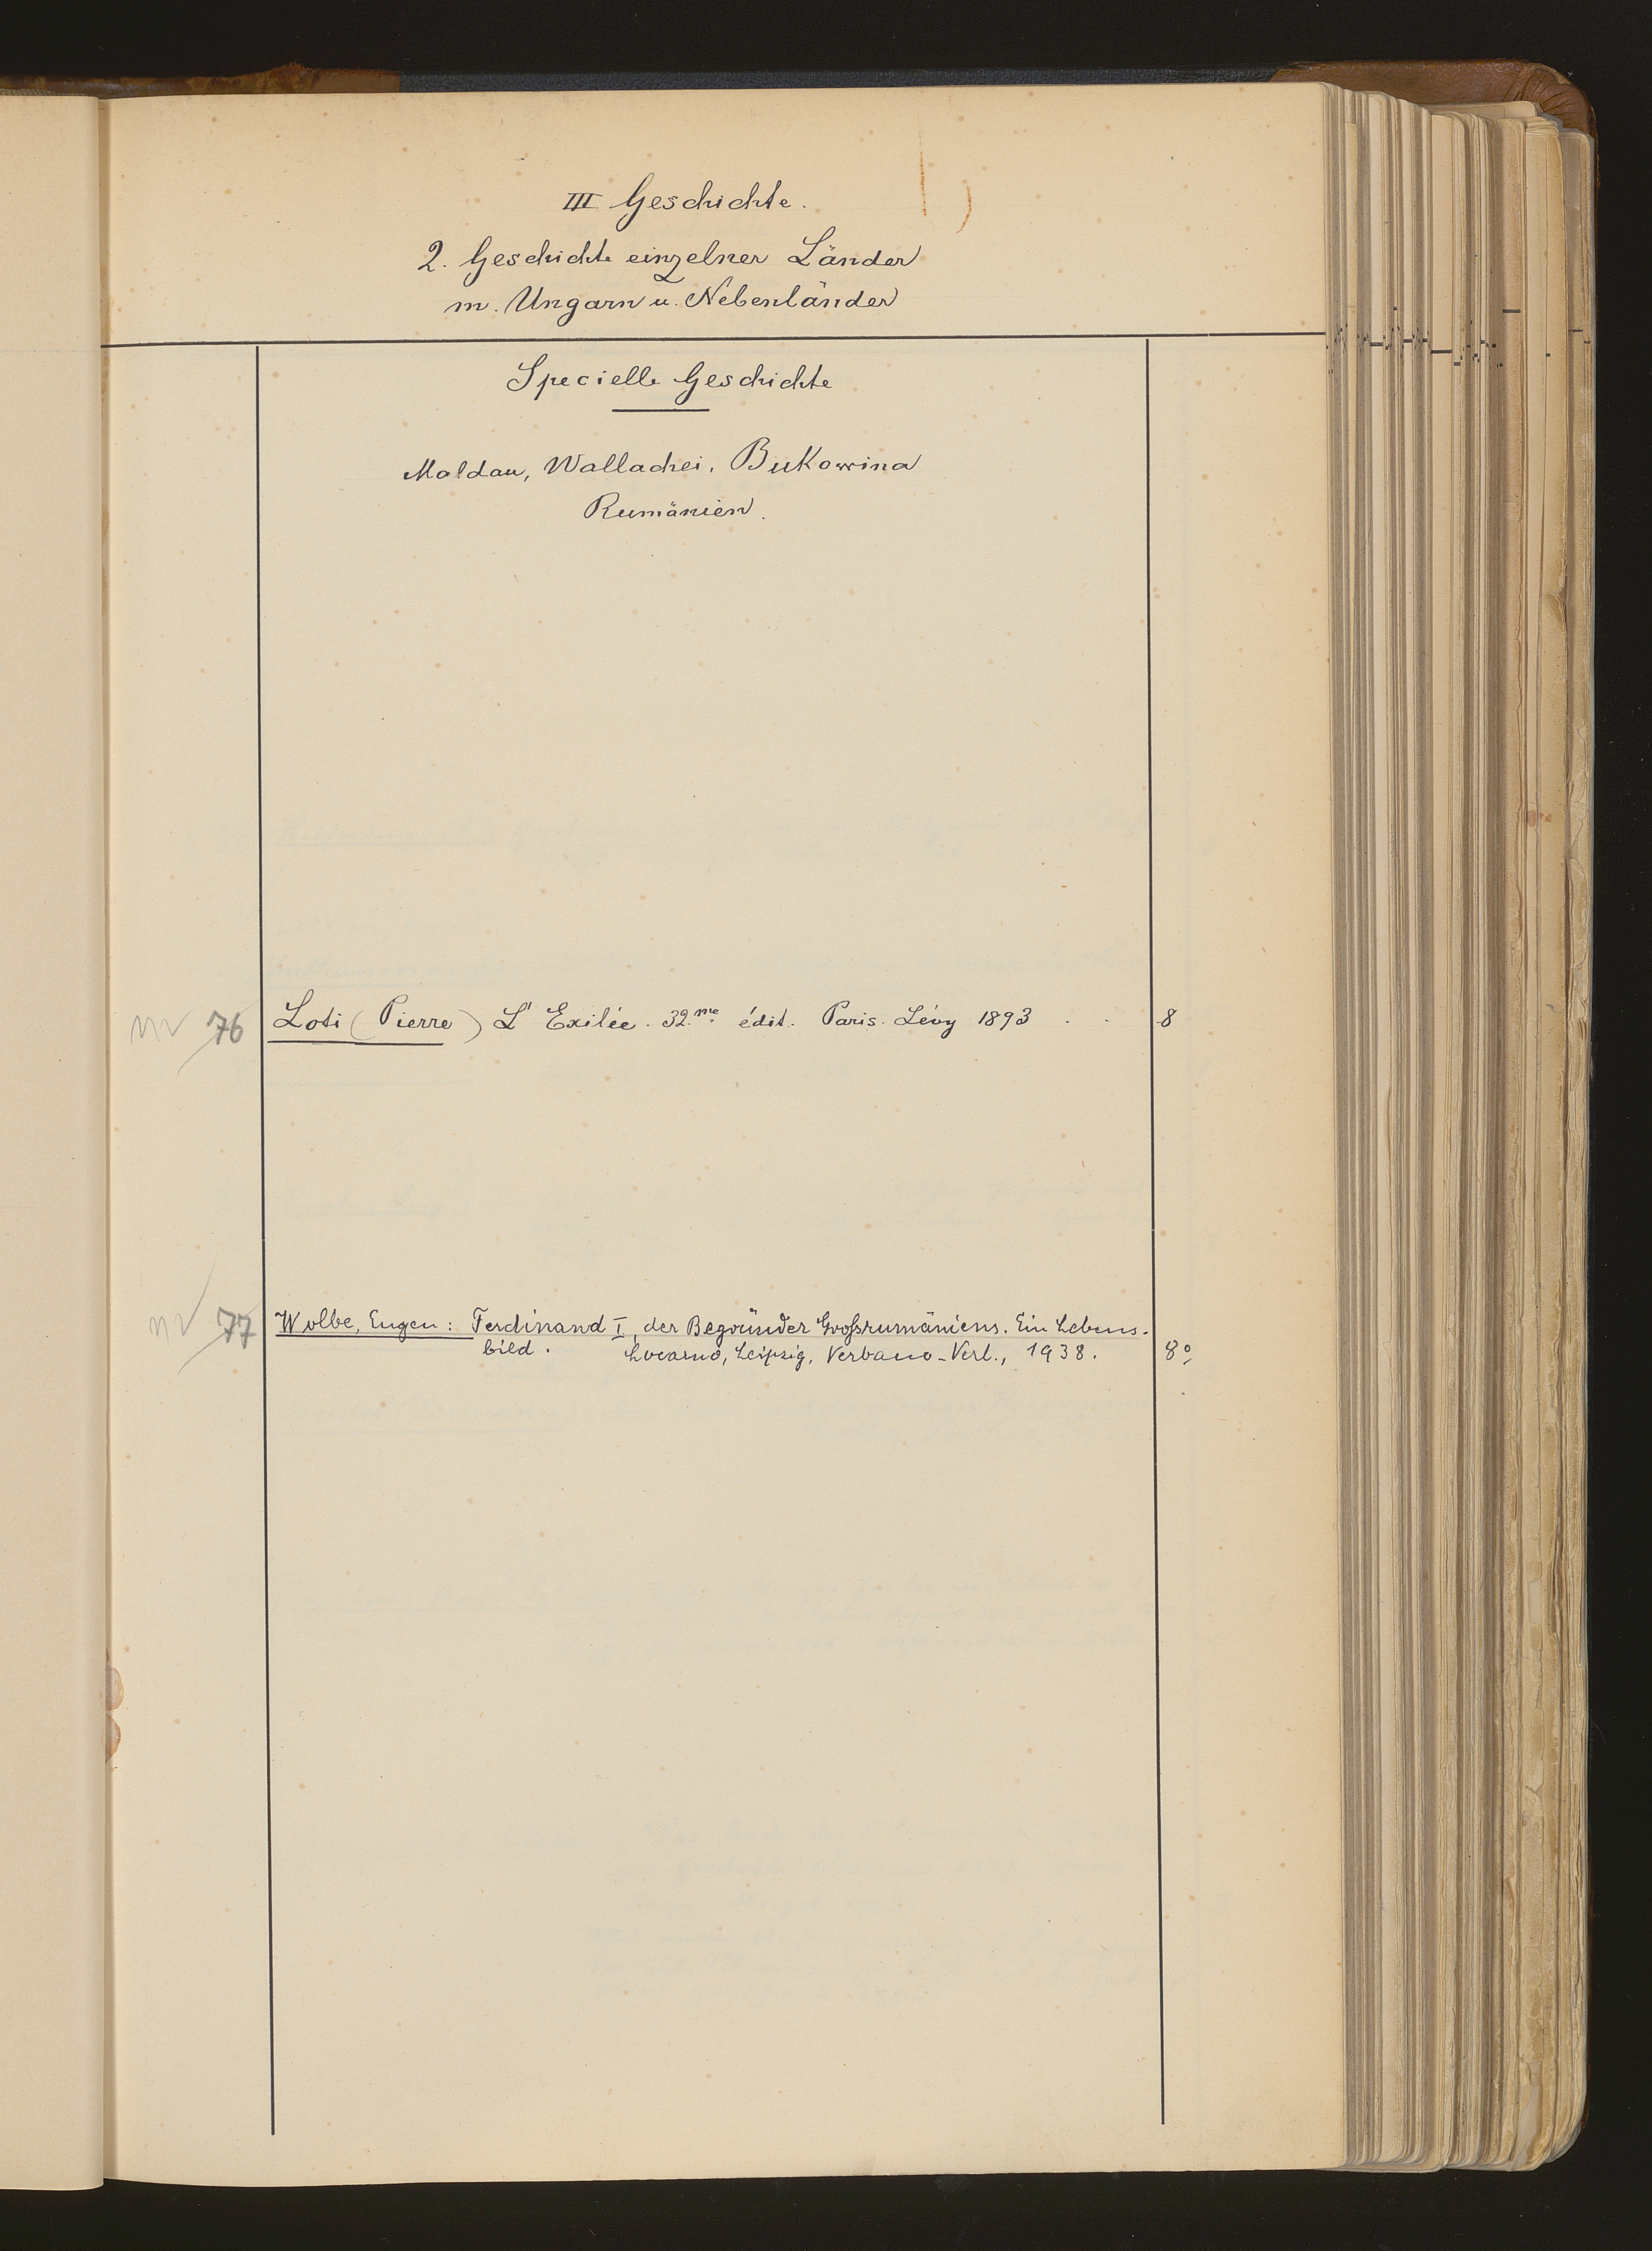 III Geschichte.
2. Geschichte einzelner Länder
m. Ungarn u. Nebenländer
Specielle Geschichte
Moldau, Wallachei, Bukowina
Rumänien.
76 Loti (Pierre) L'Exilée. 32.me édit. Paris. Lévy 1893 . . 8
77 Wolbe, Eugen: Ferdinand I, der Begründer Großrumäniens. Ein Lebens-
bild. Locarno, Leipzig, Verbano-Verl., 1938. 8º